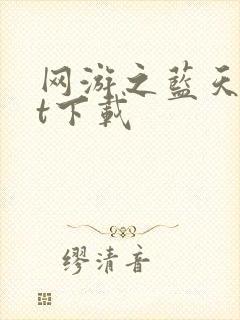 网游之蓝天
t下载
缪清音